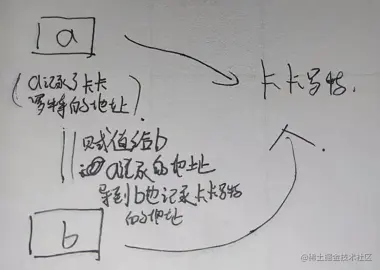 a
卡卡罗特.
(a记录了卡卡
罗特的地址).
赋值给b
a记录的地址
导到b也记录卡卡罗特
的地址
b
@稀土掘金技术社区